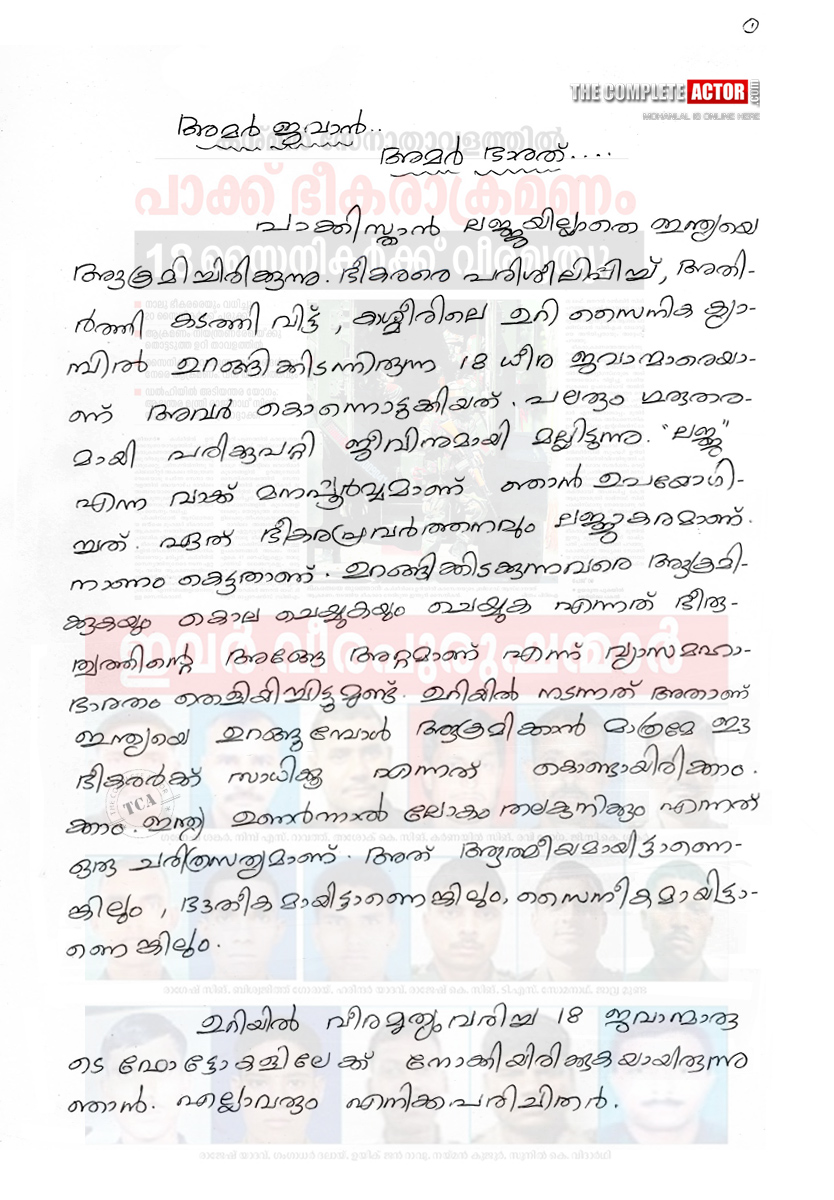 ൧
THE COMPLETE ACTOR .COM
MOHANLAL IS ONLINE HERE
അമർ ജവാൻ..
സേനാതാവളത്തിൽ
അമർ ഭാരത്....
പാക്ക് ഭീകരാക്രമണം
പാക്കിസ്താൻ ലജ്ജയില്ലാതെ ഇന്ത്യയെ
18 സൈനികർക്ക് വീരമൃത്യു
ആക്രമിച്ചിരിക്കുന്നു. ഭീകരരെ പരിശീലിപ്പിച്ച്, അതി-
ർത്തി കടത്തി വിട്ട്, കാശ്മീരിലെ ഉറി സൈനിക ക്യാ-
മ്പിൽ ഉറങ്ങിക്കിടന്നിരുന്ന 18 ധീര ജവാന്മാരെയാ-
ണ് അവർ കൊന്നൊടുക്കിയത്. പലരും ഗുരുതര-
മായി പരിക്കുപറ്റി ജീവിനുമായി മല്ലിടുന്നു. "ലജ്ജ"
എന്ന വാക്ക് മനഃപ്പൂർവ്വമാണ് ഞാൻ ഉപയോഗി-
ച്ചത്. ഏത് ഭീകരപ്രവർത്തനവും ലജ്ജാകരമാണ്.
നാണം കെട്ടതാണ്. ഉറങ്ങിക്കിടക്കുന്നവരെ ആക്രമി-
ക്കുകയും കൊല ചെയ്യുകയും ചെയ്യുക എന്നത് ഭീരു-
ഇവർ വീരപുരുഷന്മാർ
ത്വത്തിന്റെ അങ്ങേ അറ്റമാണ് എന്ന് വ്യാസമഹാ-
ഭാരതം തെളിയിച്ചിട്ടുമുണ്ട്. ഉറിയിൽ നടന്നത് അതാണ്
ഇന്ത്യയെ ഉറങ്ങുമ്പോൾ ആക്രമിക്കാൻ മാത്രമേ ഈ
ഭീകരർക്ക് സാധിക്കൂ എന്നത് കൊണ്ടായിരിക്കാം.
TCA
ക്കാം. ഇന്ത്യ ഉണർന്നാൽ ലോകം തലകുനിക്കും എന്നത്
ഒരു ചരിത്രസത്യമാണ്. അത് ആത്മീയമായിട്ടാണെ-
ങ്കിലും, ഭൗതികമായിട്ടാണെങ്കിലും, സൈനീകമായിട്ടാ-
ണെങ്കിലും.
ഉറിയിൽ വീരമൃത്യു വരിച്ച 18 ജവാന്മാരു
ടെ ഫോട്ടോകളിലേക്ക് നോക്കിയിരിക്കുകയായിരുന്നു
ഞാൻ. എല്ലാവരും എനിക്കപരിചിതർ.